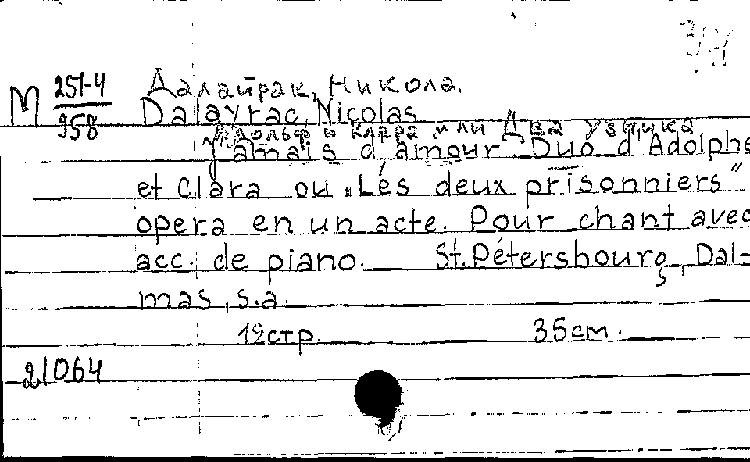 М 251-4 Далайрак, Никола.
958 Dalayrac, Nicolas
Адольф и Клара или Два узника
Jamais d'amour. Duo d'Adolphe
et Clara ou „Les deux prisonniers"
opera en un acte. Pour chant avec
acc. de piano. St.Pétersbourg, Dal-
mas, s.a.
12стр. 35см.
21064